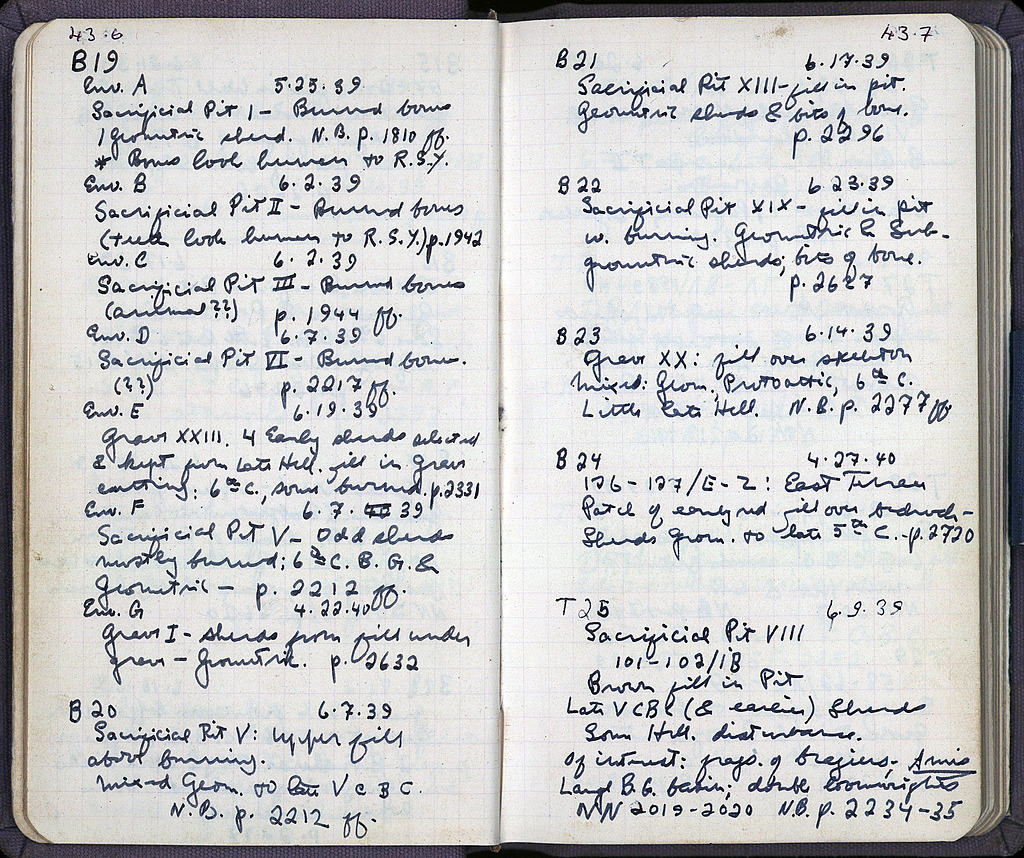 43.6
B19
Env. A 5.25.39
Sacrificial Pit I - Burned bones
1 geometric sherd. N.B. p. 1810 ff.
* Bones look human to R.S.Y.
Env. B 6.2.39
Sacrificial Pit II - Burned bones
(teeth look human to R.S.Y.) p. 1942
Env. C 6.2.39
Sacrificial Pit III - Burned bones
(animal ??) p. 1944 ff.
Env. D 6.7.39
Sacrificial Pit VI - Burned bones.
(??) p. 2217 ff.
Env. E 6.19.39
Grave XXIII. 4 Early sherds selected
& kept from late Hell. fill in grave
cutting. 6th C., some burned. p. 2331
Env. F 6.7.39
Sacrificial Pit V - Odd sherds
mostly burned; 6th C. B.G. &
Geometric - p. 2212 ff.
Env. G 4.22.40
Grave I - sherds from fill under
grave - Geometric. p. 2632
B 20 6.7.39
Sacrificial Pit V: upper fill
above burning.
Mixed Geom. to late V C B C.
N.B. p. 2212 ff.
43.7
B21 6.17.39
Sacrificial Pit XIII - fill in pit.
Geometric sherds & bits of bone.
p. 2296
B22 6.23.39
Sacrificial Pit XIX - fill in pit
w. burning. Geometric & Sub-
geometric sherds, bits of bone.
p. 2627
B23 6.14.39
Grave XX: fill over skeleton
Mixed: Geom, Protoattic, 6th C.
Little late Hell. N.B. p. 2277 ff.
B 24 4.27.40
126-127/E-Z: East Terrace
Patch of early red fill over bedrock -
Sherds Geom. to late 5th C. - p. 2720
T 25 6.9.39
Sacrificial Pit VIII
101-102/IB
Brown fill in Pit
Late V C B C (& earlier) Sherds
Some Hell. disturbance.
Of interest: frags. of braziers,
Large B.G. basin; double loomweights
NN 2019-2020 N.B. p. 2234-35